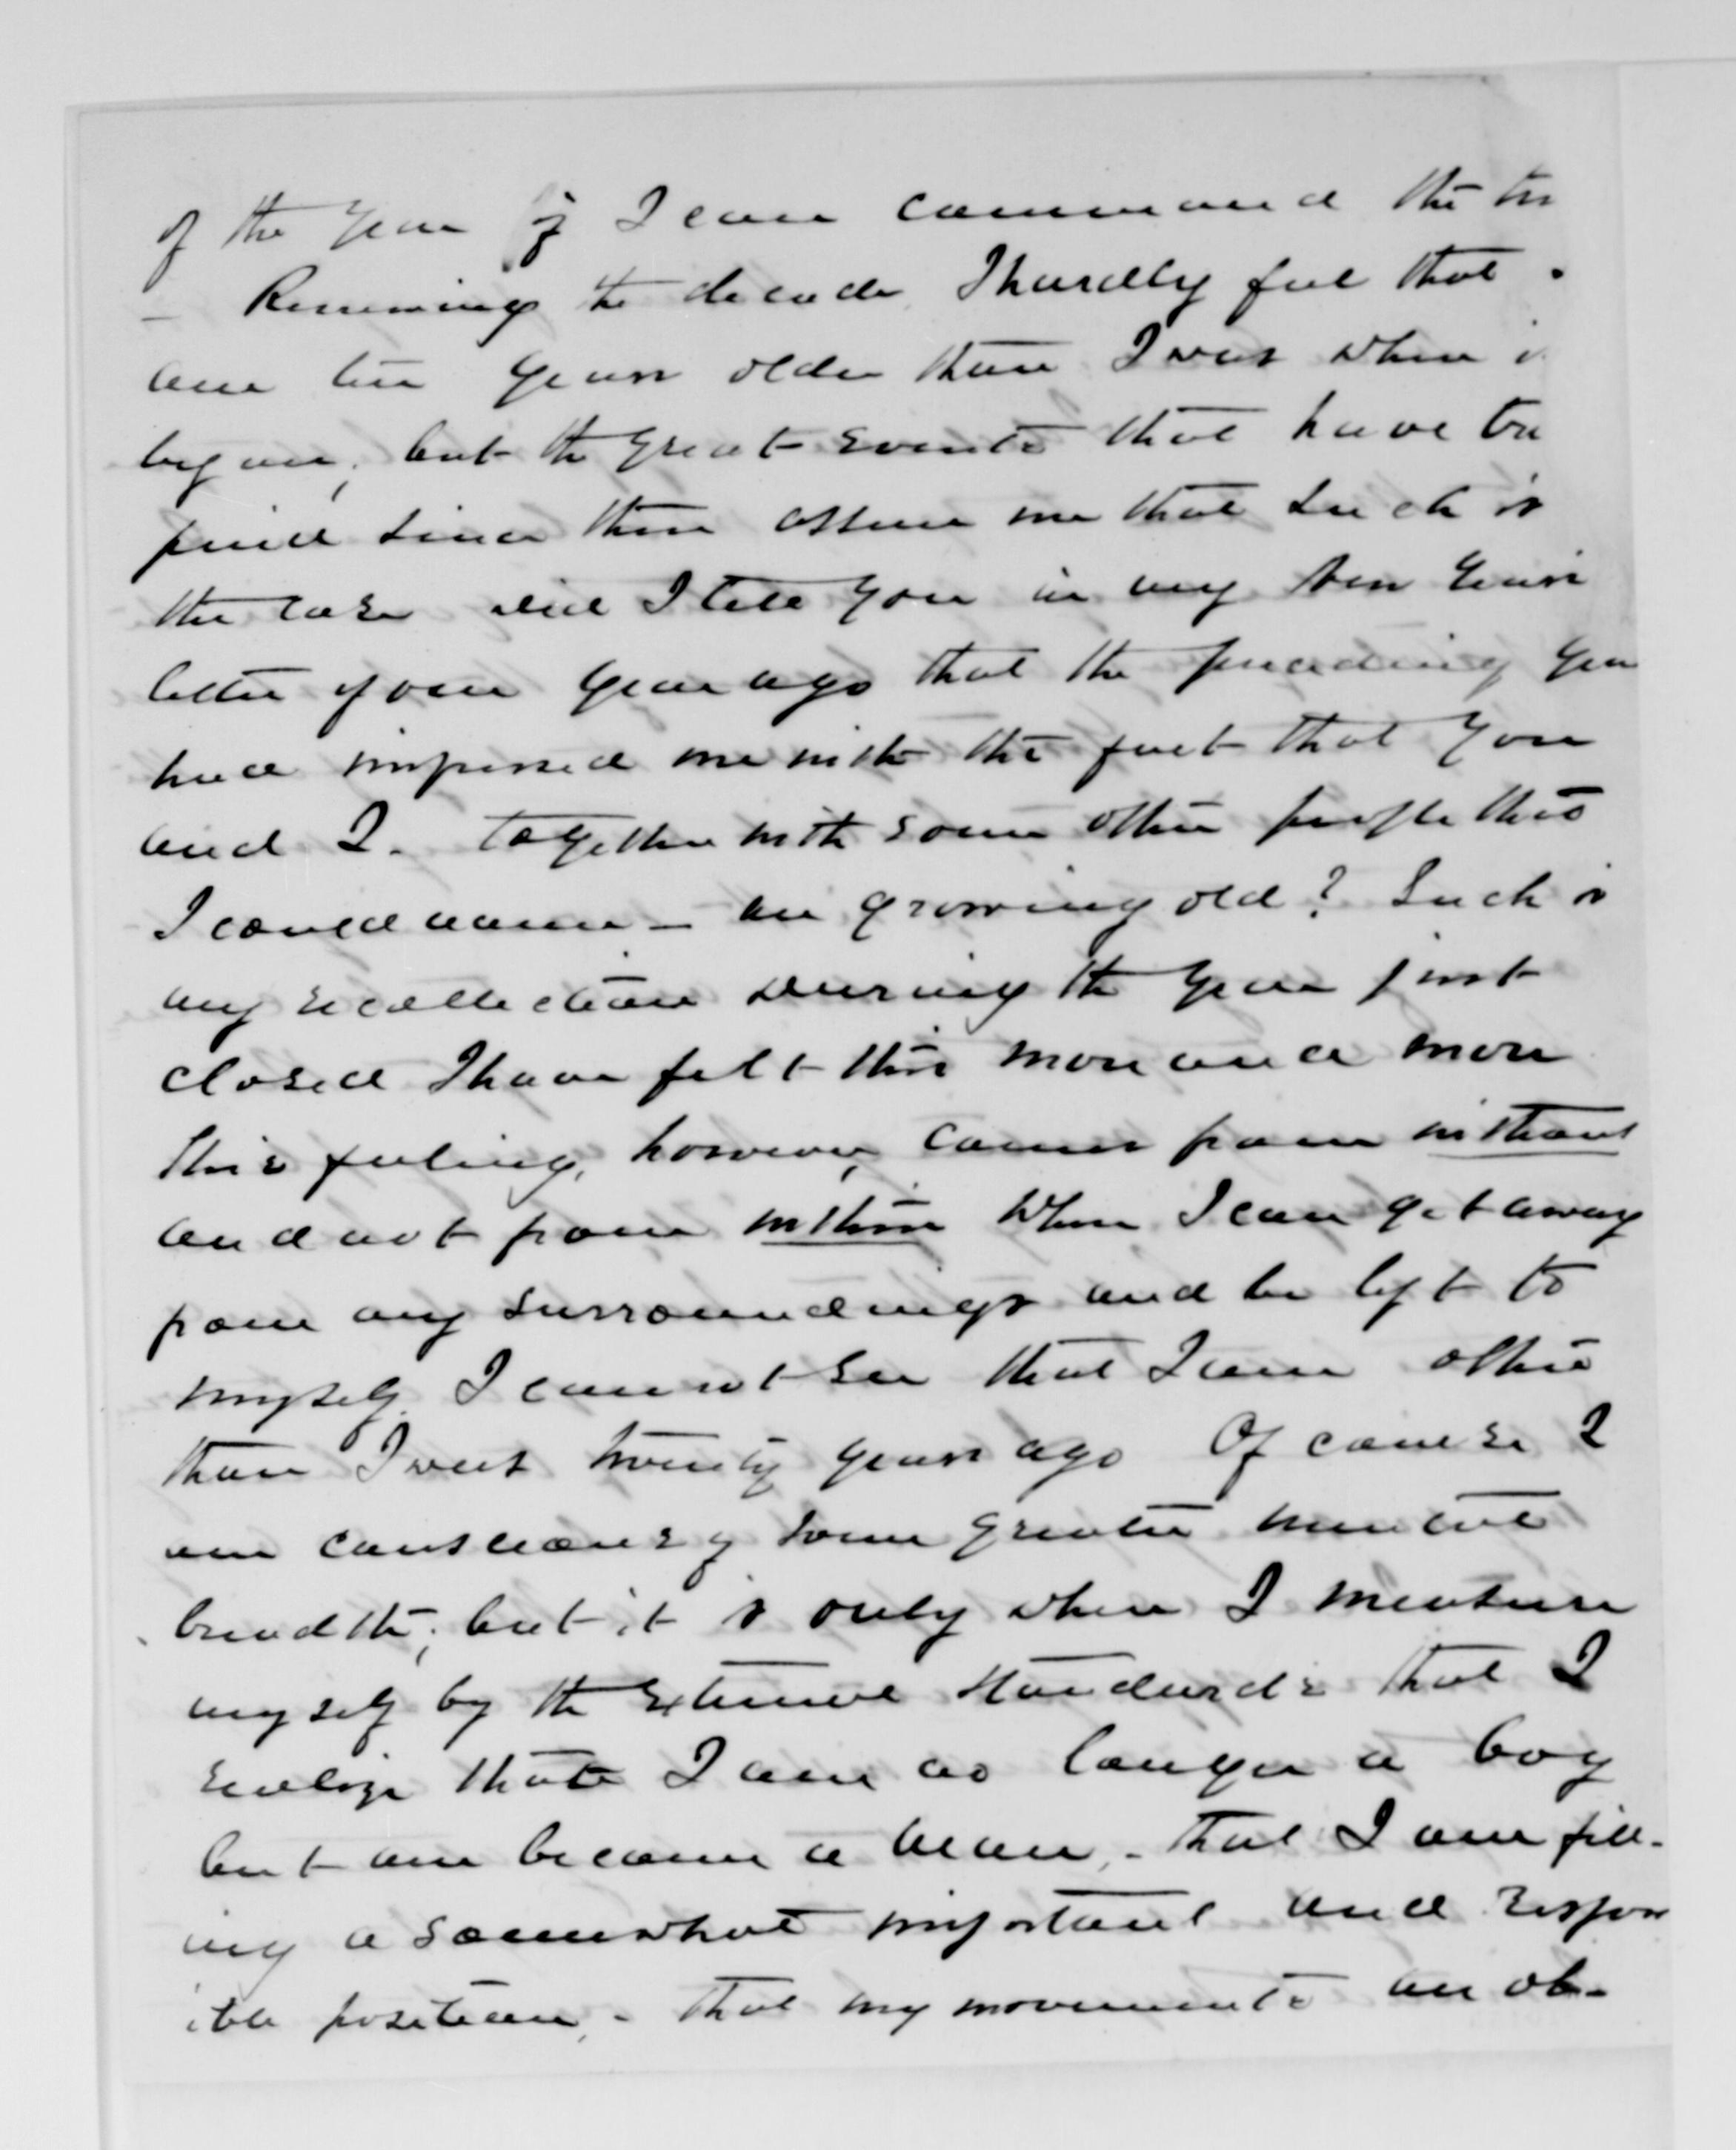 of the year if I can command the
- Reviewing the decade I hardly feel that
am ten years older than I was when
began, but the great events that have
since then assure me that such is
the case did I tell you in my New Years
letter of one year ago that the preceding
had impressed me with the fact that you
and I - together with some other people this
I could name - are growing old? Such is
my recollection During the year just
closed I have felt this more and more
This feeling, however, comes from without
and not from within When I can get away
from my surroundings and be left to
myself I cannot see that I am other
than I was twenty years ago Of course I
am conscious of some greater mental
breadth; but it is only when I measure
myself by the external standards that I
realize that I am no longer a boy
but am become a man, - that I am fill-
ing a somewhat important and respon
ible position, - that my movements are ob-